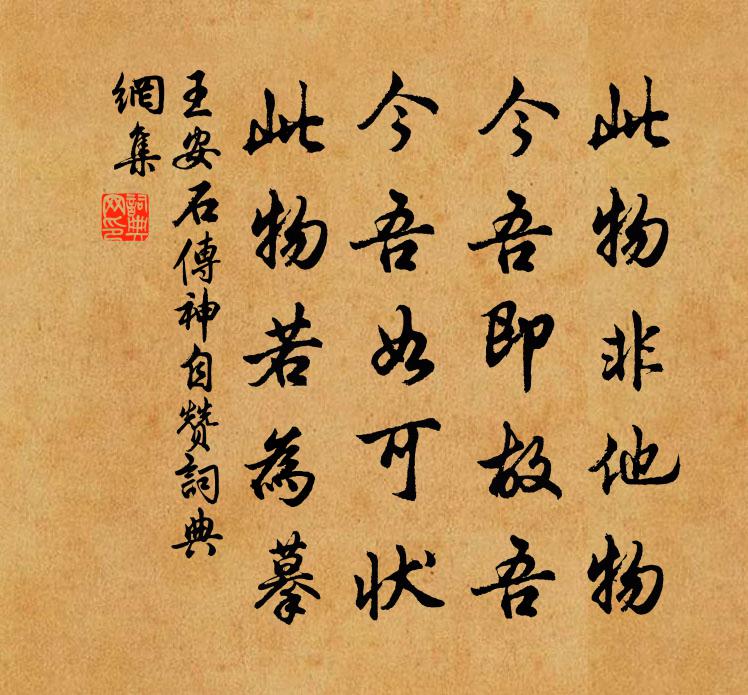 此物非他物
今吾即故吾
今吾如可状
此物若為摹
王安石傳神自赞詞典
網集
詞典
网印